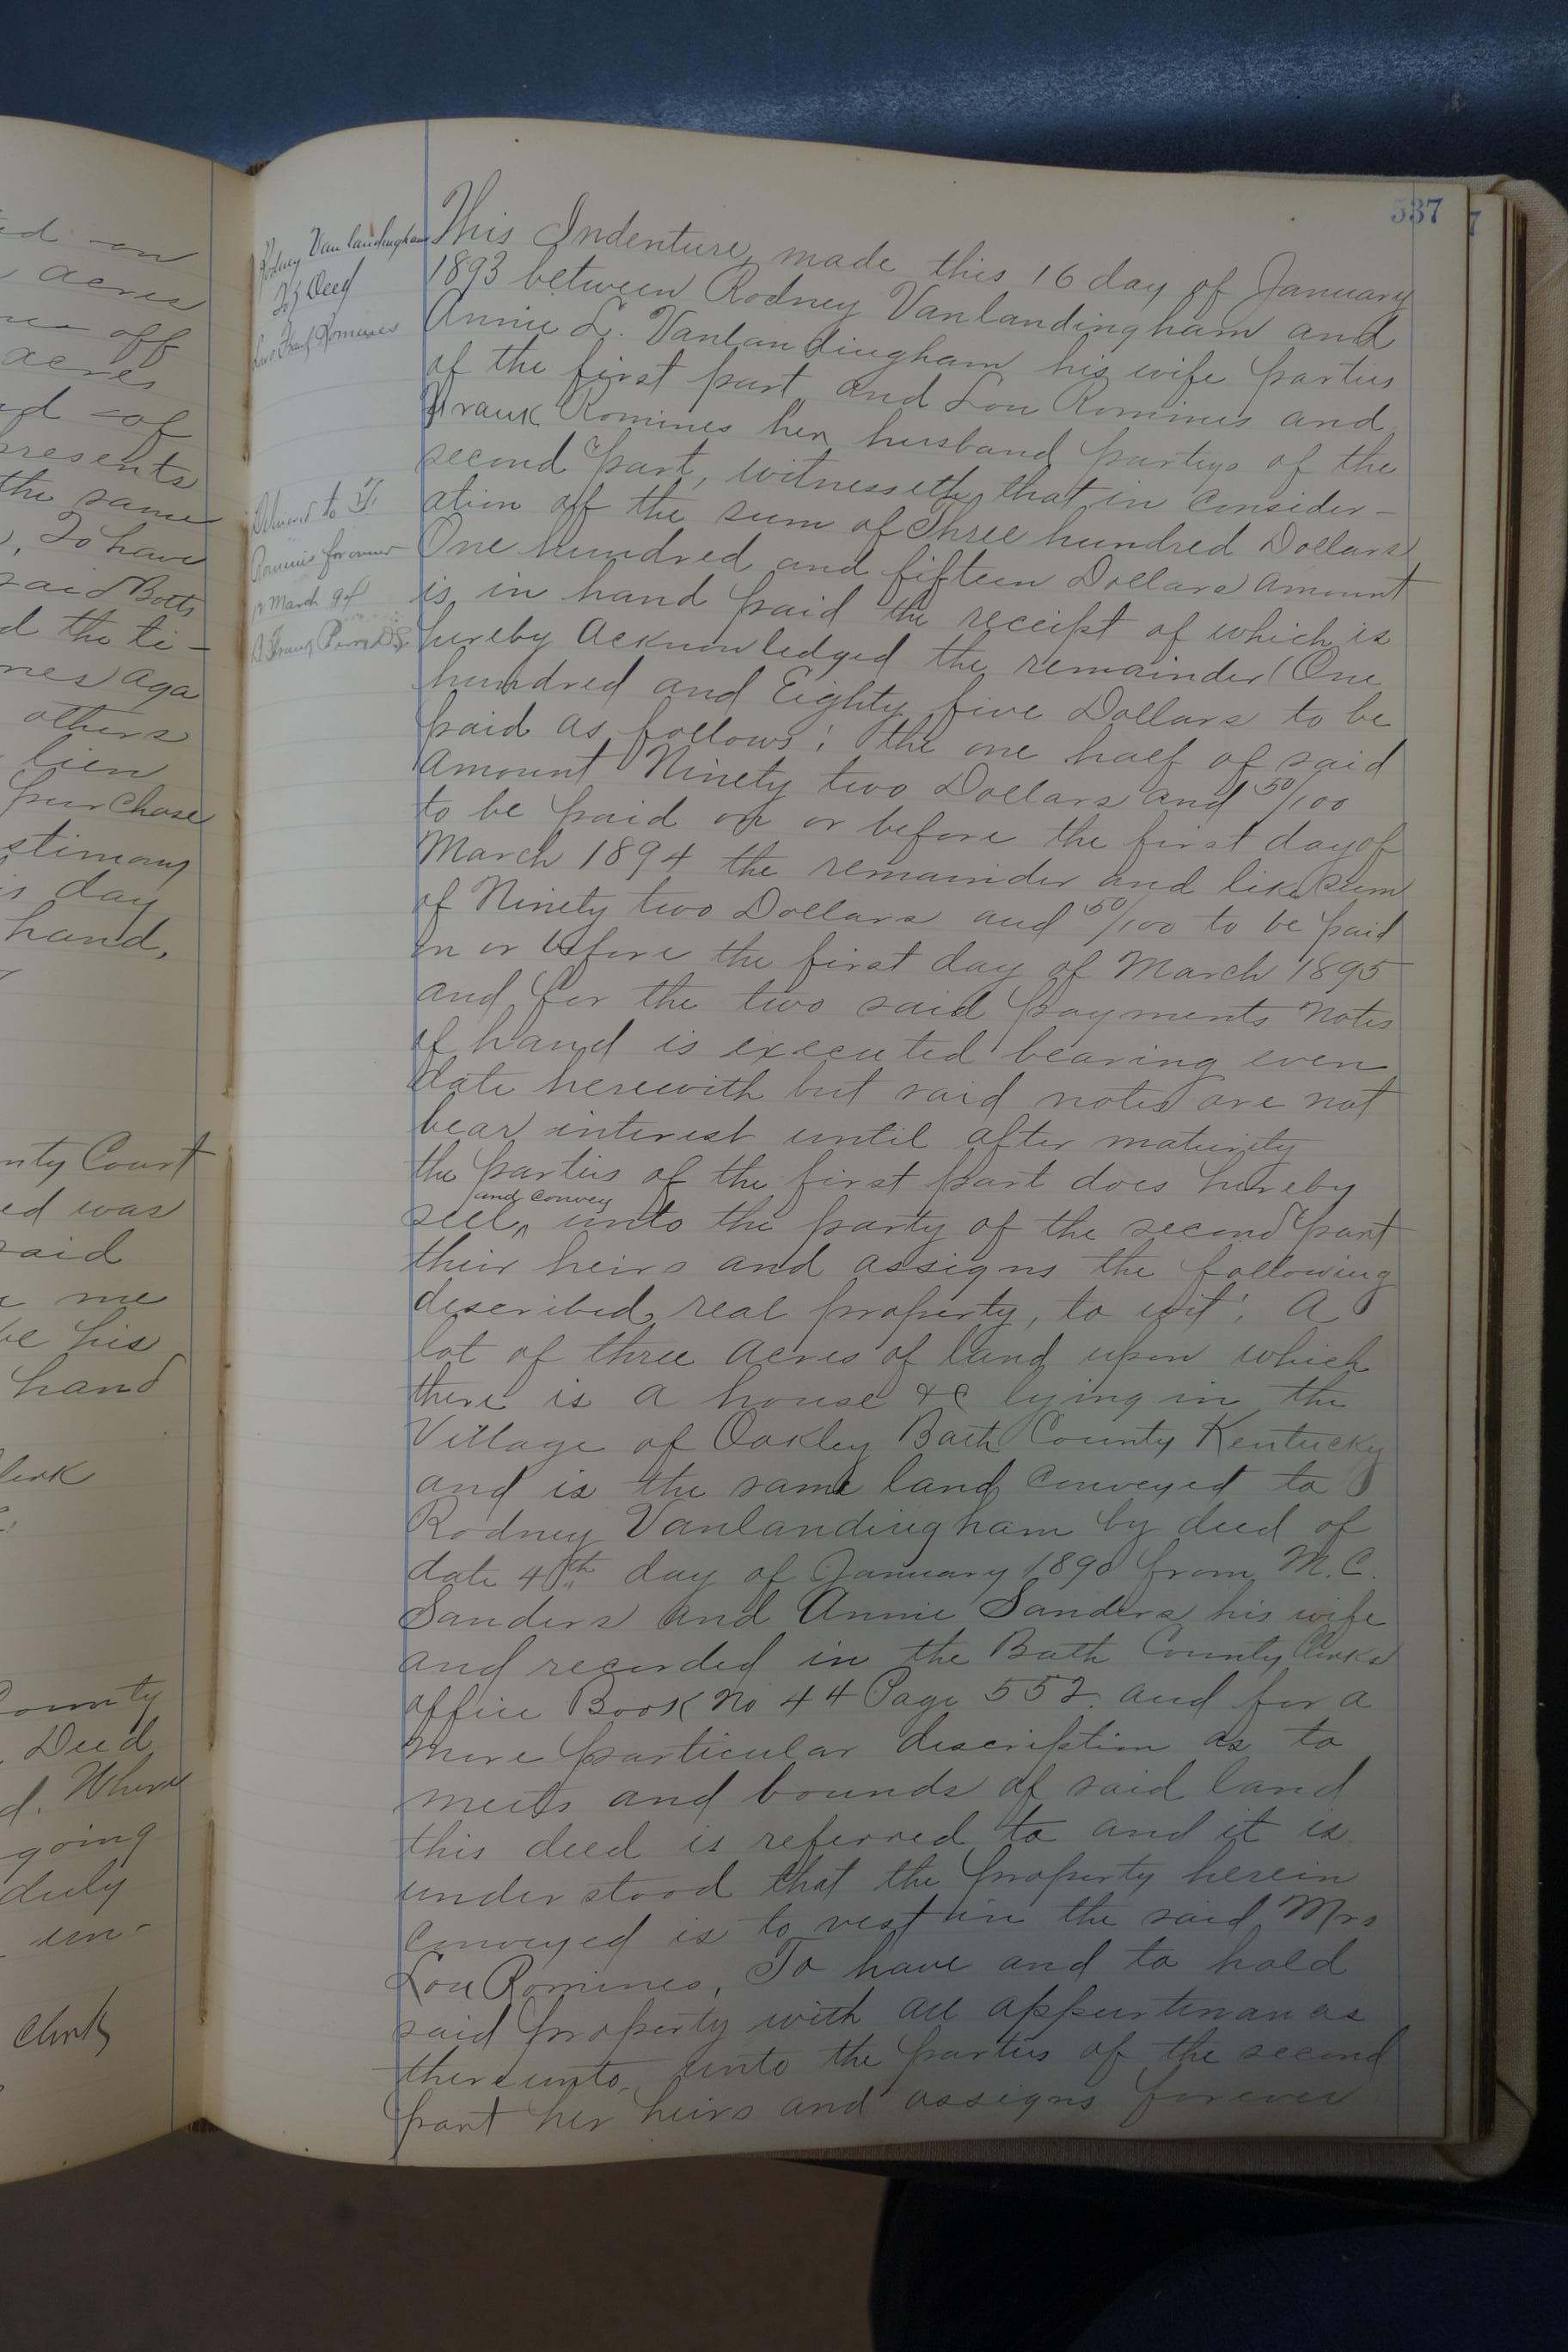 ed on
acres
off
acres
nd of
presents
the same
, To have
said Botts
d the ti-
mes aga
others
lien
purchase
stimony
is day
hand,
nty Court
ed was
said
me
be his
hand
Clerk
County
Deed
d. Where
going
duly
un-
Clerk
537
Rodney Vanlandingham
To } Deed
Lou & Frank Romines
Delivered to F.
Romines for owner
March 94
This Indenture, made this 16 day of January
1893 between Rodney Vanlandingham and
Annie L. Vanlandingham his wife parties
of the first part and Lou Romines and
Frank Romines her husband partys of the
second part, witnesseth, that in consider-
ation off the sum of Three hundred Dollars
One hundred and fifteen Dollars amount
is in hand paid the receipt of which is
hereby acknowledged the remainder (One
hundred and Eighty five Dollars to be
paid as follows: the one half of said
amount Ninety two Dollars and 50/100
to be paid on or before the first day of
March 1894 the remainder and like sum
of Ninety two Dollars and 50/100 to be paid
on or before the first day of March 1895
and for the two said payments notes
of hand is executed bearing even
date herewith but said notes are not
bear interest until after maturity
the parties of the first part does hereby
and convey
sell ^ unto the party of the second part
their heirs and assigns the following
described real property, to wit: A
lot of three acres of land upon which
there is a house &c lying in the
Village of Oakley Bath County Kentucky
and is the same land conveyed to
Rodney Vanlandingham by deed of
date 4th day of January 1890 from M.C.
Sanders and Annie Sanders his wife
and recorded in the Bath County Clerks
office Book No 44 Page 552. and for a
more particular description as to
meets and bounds of said land
this deed is referred to and it is
understood that the property herein
conveyed is to vest in the said Mrs
Lou Romines, To have and to hold
said property with all appurtenances
thereunto, unto the parties of the second
part her heirs and assigns forever